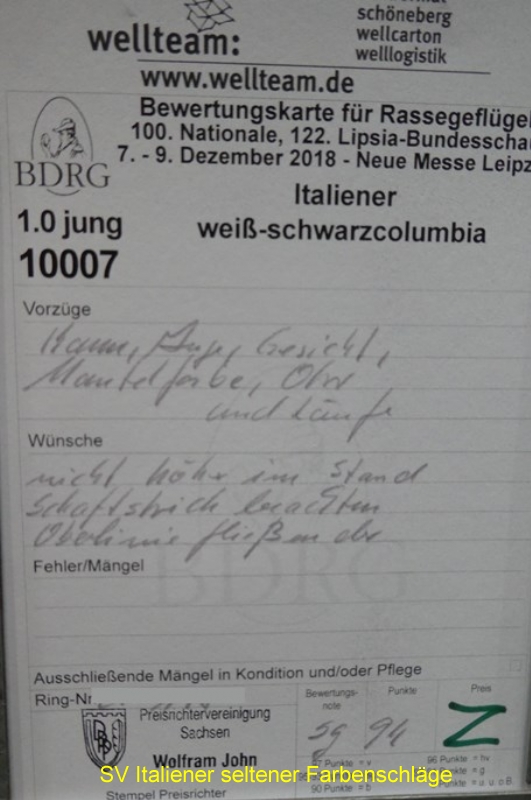 wellteam:
schöneberg
wellcarton
welllogistik
www.wellteam.de
Bewertungskarte für Rassegeflügel
100. Nationale, 122. Lipsia-Bundesscha
7. - 9. Dezember 2018 - Neue Messe Leipz
BDRG
Italiener
1.0 jung
weiß-schwarzcolumbia
10007
Vorzüge
Kamm, Auge, Gesicht,
Mantelfarbe, Ohr
und Läufe
Wünsche
nicht höher im Stand
Schaftstrich beachten
Oberlinie fließender
Fehler/Mängel
BDRG
Ausschließende Mängel in Kondition und/oder Pflege
Ring-Nr
Bewertungs-
note
Punkte
Preis
Preisrichtervereinigung
Sachsen
sg 94 Z
Wolfram John
97 Punkte = v
96 Punkte = hv
Punkte = g
90 Punkte = b
Punkte = u. u. o.B.
SV Italiener seltener Farbenschläge
Stempel Preisrichter